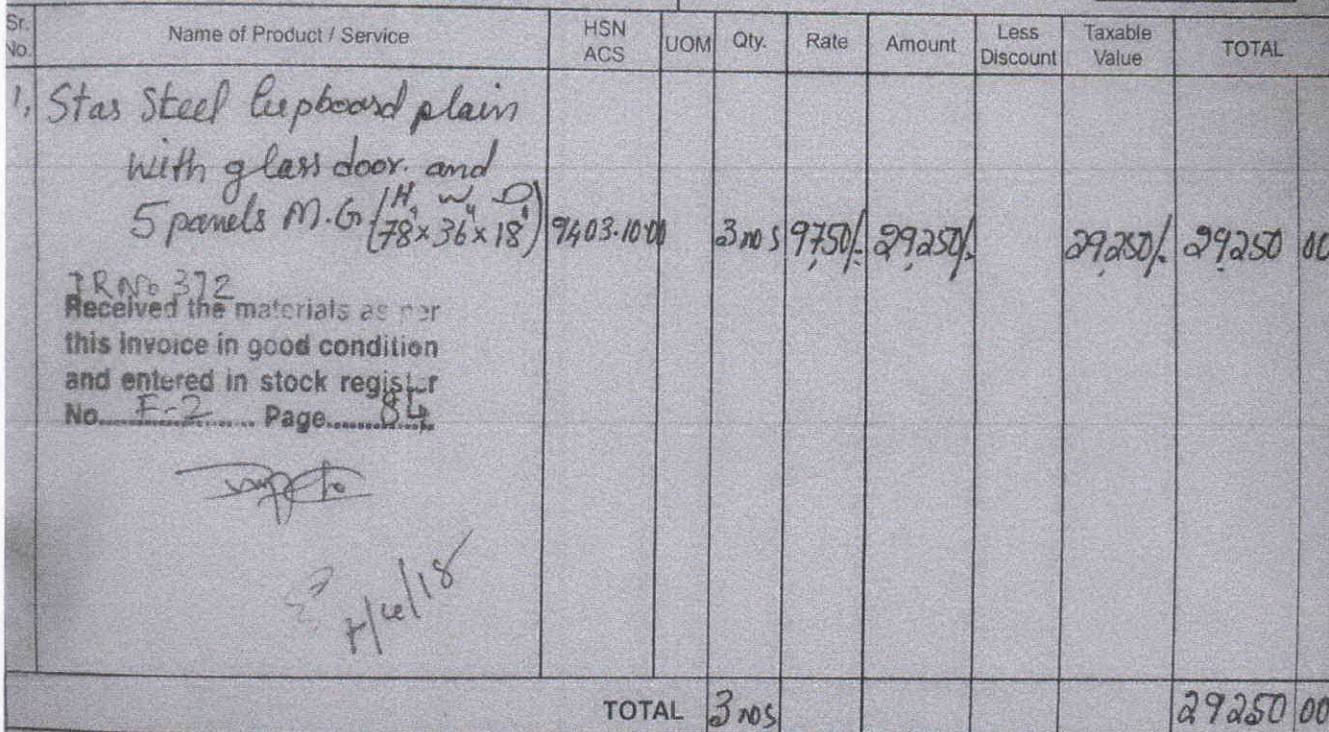 Sr. No. Name of Product / Service HSN ACS UOM Qty. Rate Amount Less Discount Taxable Value TOTAL
1, Stas Steel Cupboard plain
with glass door. and
H" W" D"
5 panels M.G (78 x 36 x 18) 9403.10.00 3 nos 9,750/- 29,250/- 29,250/- 29,250 00
IR No 372
Received the materials as per
this invoice in good condition
and entered in stock register
No. F-2 Page 84
/18
TOTAL 3 nos 29250 00